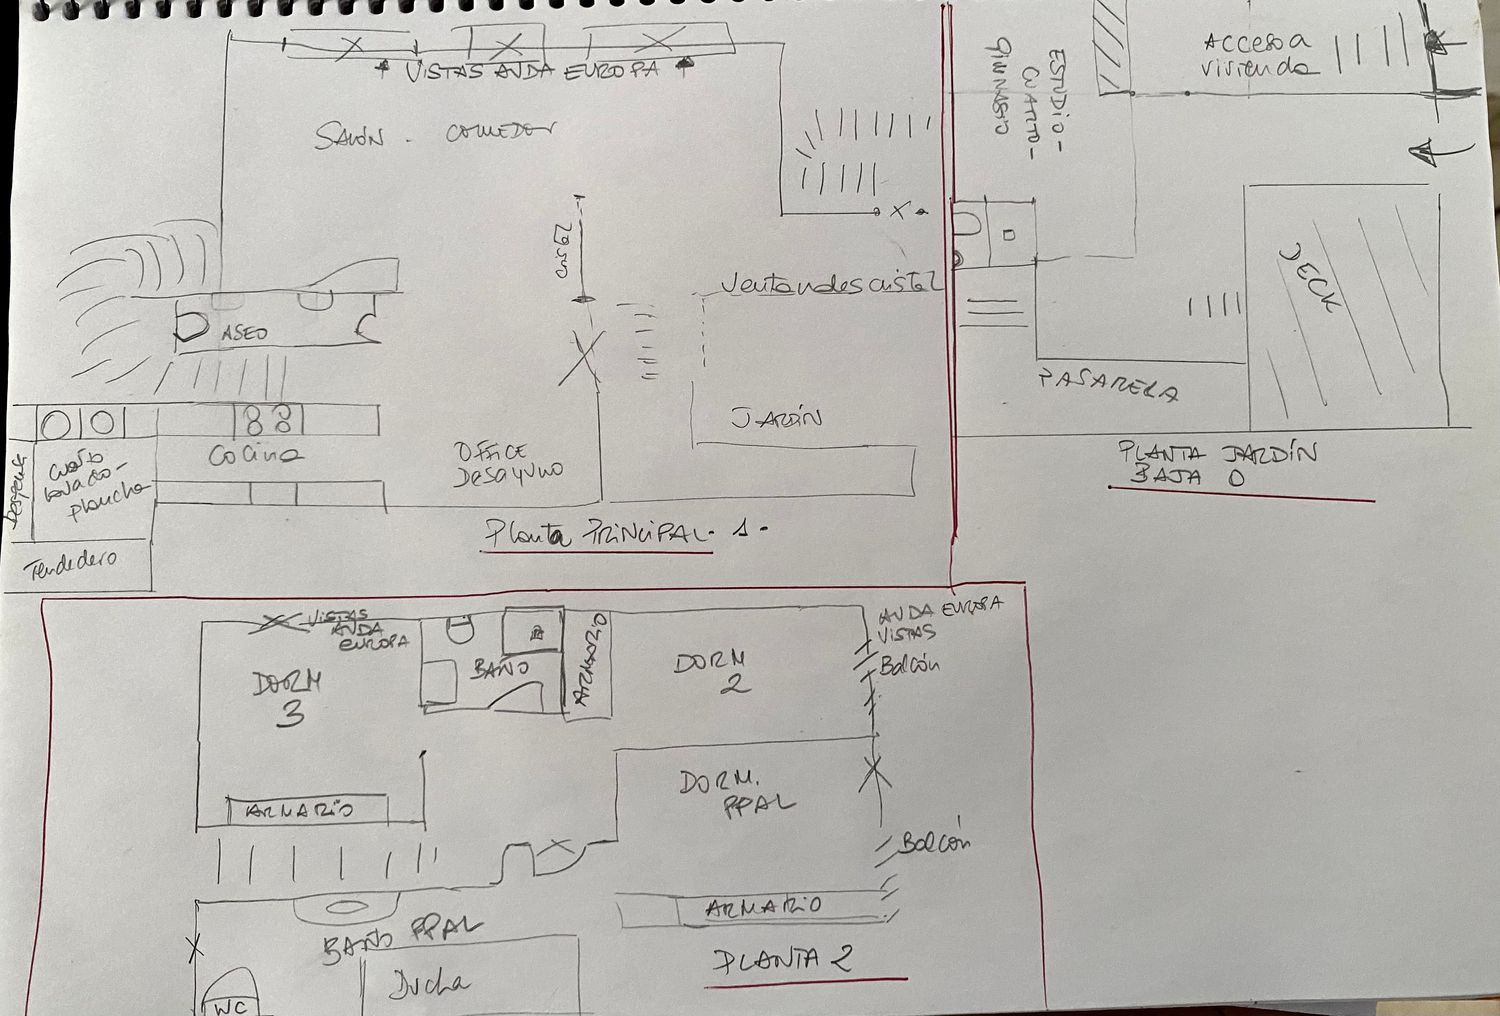 VISTAS AVDA EUROPA
SALÓN - COMEDOR
ASEO
Ventandes cristal
JARDÍN
Cocina
OFFICE
DESAYUNO
cuarto
lavado -
plancha
Tendedero
Planta PRINCIPAL - 1 -
ESTUDIO -
CUARTO -
GIMNASIO
ACCESO a
vivienda
DECK
PASARELA
PLANTA JARDÍN
BAJA 0
VISTAS
AVDA
EUROPA
DORM
3
BAÑO
ARMARIO
DORM
2
AVDA EUROPA
VISTAS
Balcón
ARMARIO
DORM.
PPAL
Balcón
ARMARIO
BAÑO PPAL
Ducha
WC
PLANTA 2